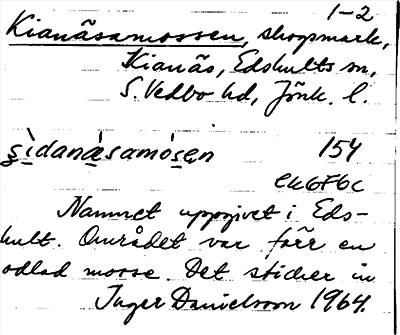 1-2
Kianäsamossen, skogsmark,
Kianäs, Edshults sn,
S. Vedbo hd, Jönk. l.
s̠ìdanà̠samós̠en 154
ek6F6c
Namnet uppgivet i Eds-
hult. Området var förr en
odlad mosse. Det sticker in
Inger Danielsson 1964.